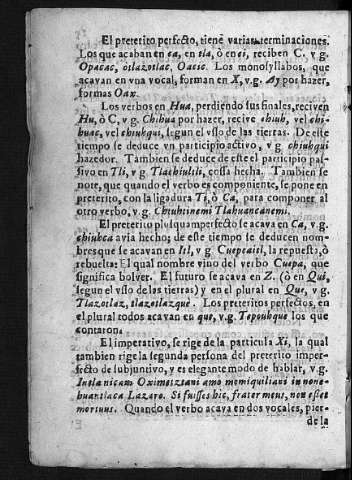 El preterito perfecto, tiene varias terminaciones.
Los que acaban en ca, en tla, ò en ci, reciben C. v g.
Opacac, otlazotlac, Oacic. Los monosyllabos, que
acavan en vna vocal, forman en X, v.g. Ay por hazer,
formas Oax.
Los verbos en Hua, perdiendo sus finales, reciven
Hu, ò C, v g. Chihua por hazer, recive chiuh, vel chi-
huac, vel chiuhqui, segun el vsso de las tierras. De este
tiempo se deduce vn participio activo, v g chiuhqui
hazedor. Tambien se deduce de este el participio pas-
sivo en Tli, v g. Tlachiuhtli, cossa hecha. Tambien se
note, que quando el verbo es componiente, se pone en
preterito, con la ligadura Ti, ò Ca, para componer al
otro verbo, v g. Chiuhtinemi Tlahuancanemi.
El preterito plusquamperfecto se acava en Ca, v g.
chiuhca avia hecho; de este tiempo se deducen nom-
bres que se acavan en Itl, v g. Cuepcaitl, la repuesta, ò
rebuelta: El qual nombre vino del verbo Cuepa, que
significa bolver. El futuro se acava en Z. (ò en Qui,
segun el vsso de las tierras) y en el plural en Que, v g.
Tlazotlaz, tlazotlazquè. Los preteritos perfectos, en
el plural todos acavan en que, v g. Tepouhque los que
contaron.
El imperativo, se rige de la particula Xi, la qual
tambien rige la segunda persona del preterito imper-
fecto de subjuntivo, y es elegante modo de hablar, v.g.
Intla nican Oximetztani amo memiquiliani in none-
huantlaca Lazaro. Si fuisses hic, frater meus, non esset
mortuus. Quando el verbo acava en dos vocales, pier-
de la